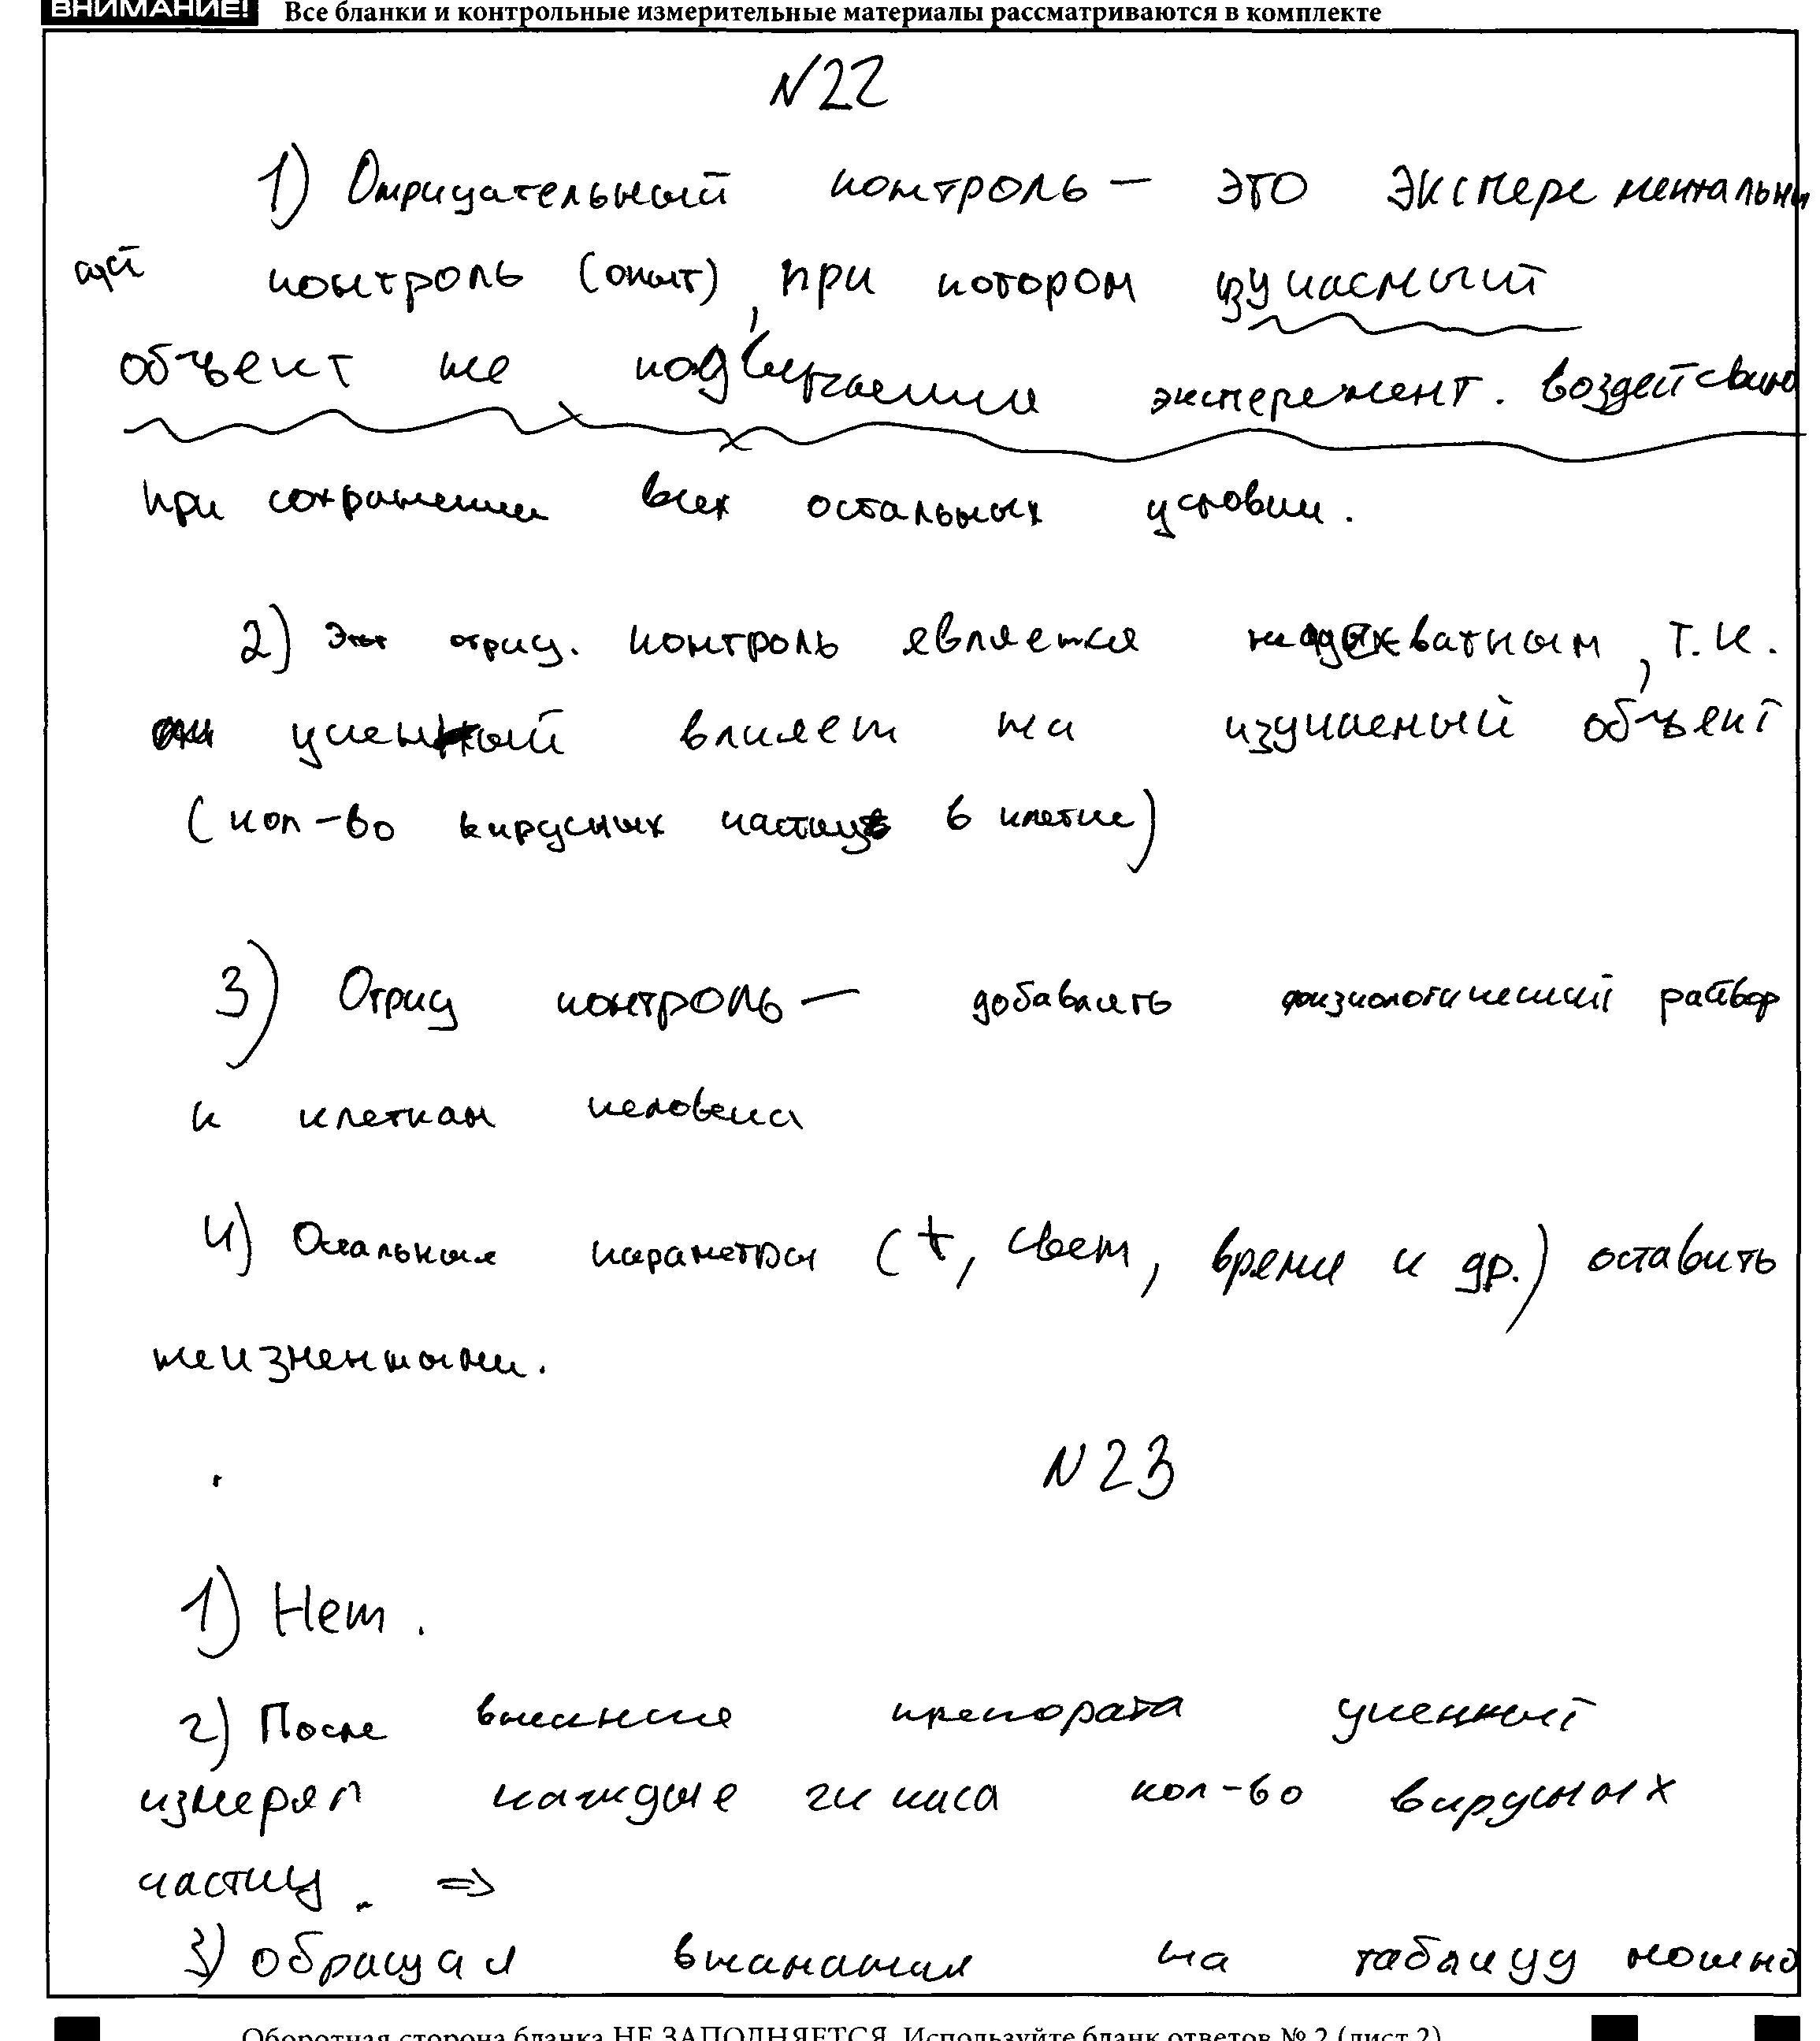 ВНИМАНИЕ! Все бланки и контрольные измерительные материалы рассматриваются в комплекте
N22
1) Отрицательный контроль — это эксперементальны
ый контроль (опыт), при котором изучаемый
объект не подвергаении эксперемент. воздействию
при сохранении всех остальных условии.
2) Этот отриц. контроль является неадекватным, т.к.
ученный влияет на изучаемый объект
(кол-во вирусных частиц в клетке)
3) Отриц контроль — добавлить физиологический раствор
к клеткам человека
4) Остальные параметры (t, свет, время и др.) оставить
неизменными.
N23
1) Нет.
2) После препората ученный
измерял каждые 2и часа кол-во вирусных
частиц. ⇒
3) обращая внимания на таблицу можно
Оборотная сторона бланка НЕ ЗАПОЛНЯЕТСЯ. Используйте бланк ответов № 2 (лист 2)